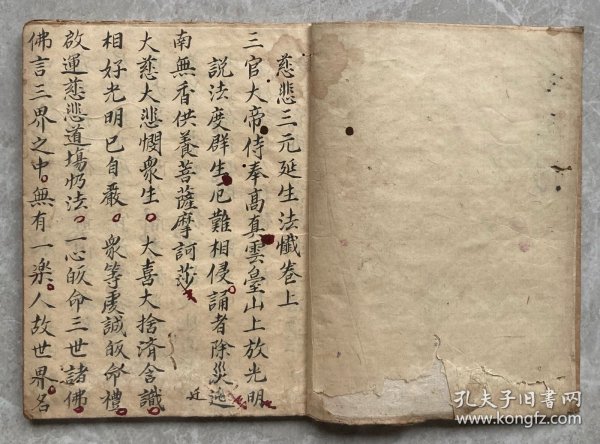 慈悲三元延生法懺卷上
三官大帝侍奉高真雲臺山上放光明
說法度群生厄難相侵誦者除災迍
南無香供養菩薩摩訶莎
大慈大悲憫衆生大喜大捨濟含識
相好光明已自嚴衆等虔誠皈命禮
啟運慈悲道場懺法一心皈命三世諸佛
佛言三界之中無有一樂人故世界名
孔夫子旧书网
kongfz.com